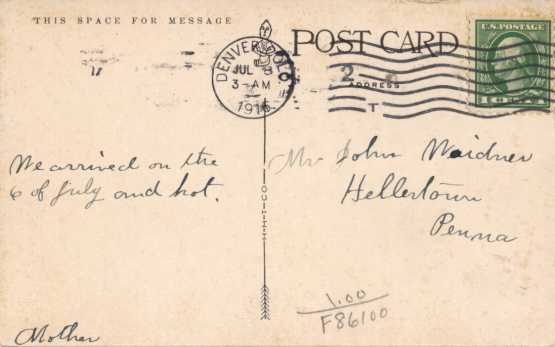 THIS SPACE FOR MESSAGE
POST CARD
ADDRESS
U.S. POSTAGE
DENVER, COLO.
JUL 8
3-AM
1916
2
T
We arrived on the
6 of July and hot.
Mother
Mr John Weidner
Hellertown
Penna
1.00
F86100